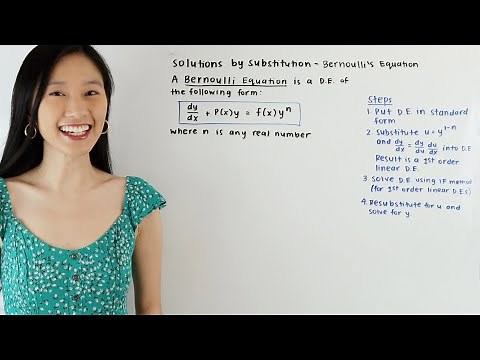 Solutions by Substitution - Bernoulli's Equation
A Bernoulli Equation is a D.E. of
the following form:
dy/dx + P(x)y = f(x)y^n
where n is any real number
Steps
1. Put D.E. in standard
form
2. Substitute u = y^1-n
and dy/dx = dy/du du/dx into D.E
Result is a 1st order
linear D.E.
3. Solve D.E. using IF method
(for 1st order linear D.E.s)
4. Resubstitute for u and
solve for y